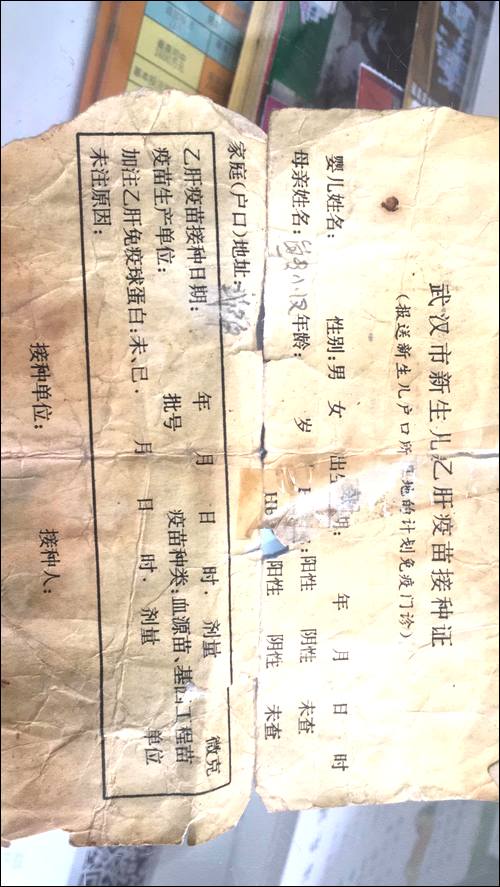 武汉市新生儿乙肝疫苗接种证
(报送新生儿户口所 地的计划免疫门诊)
婴儿姓名: 性别:男 女 出生 期: 年 月 日 时
母亲姓名: 年龄: 岁 :阳性 阴性 未查
Hb 阳性 阴性 未查
家庭(户口)地址:
乙肝疫苗接种日期: 年 月 日 时. 剂量 微克
疫苗生产单位: 批号 疫苗种类:血源苗、基因工程苗
加注乙肝免疫球蛋白:未、已. 月 日 时. 剂量 单位
未注原因:
接种单位: 接种人: